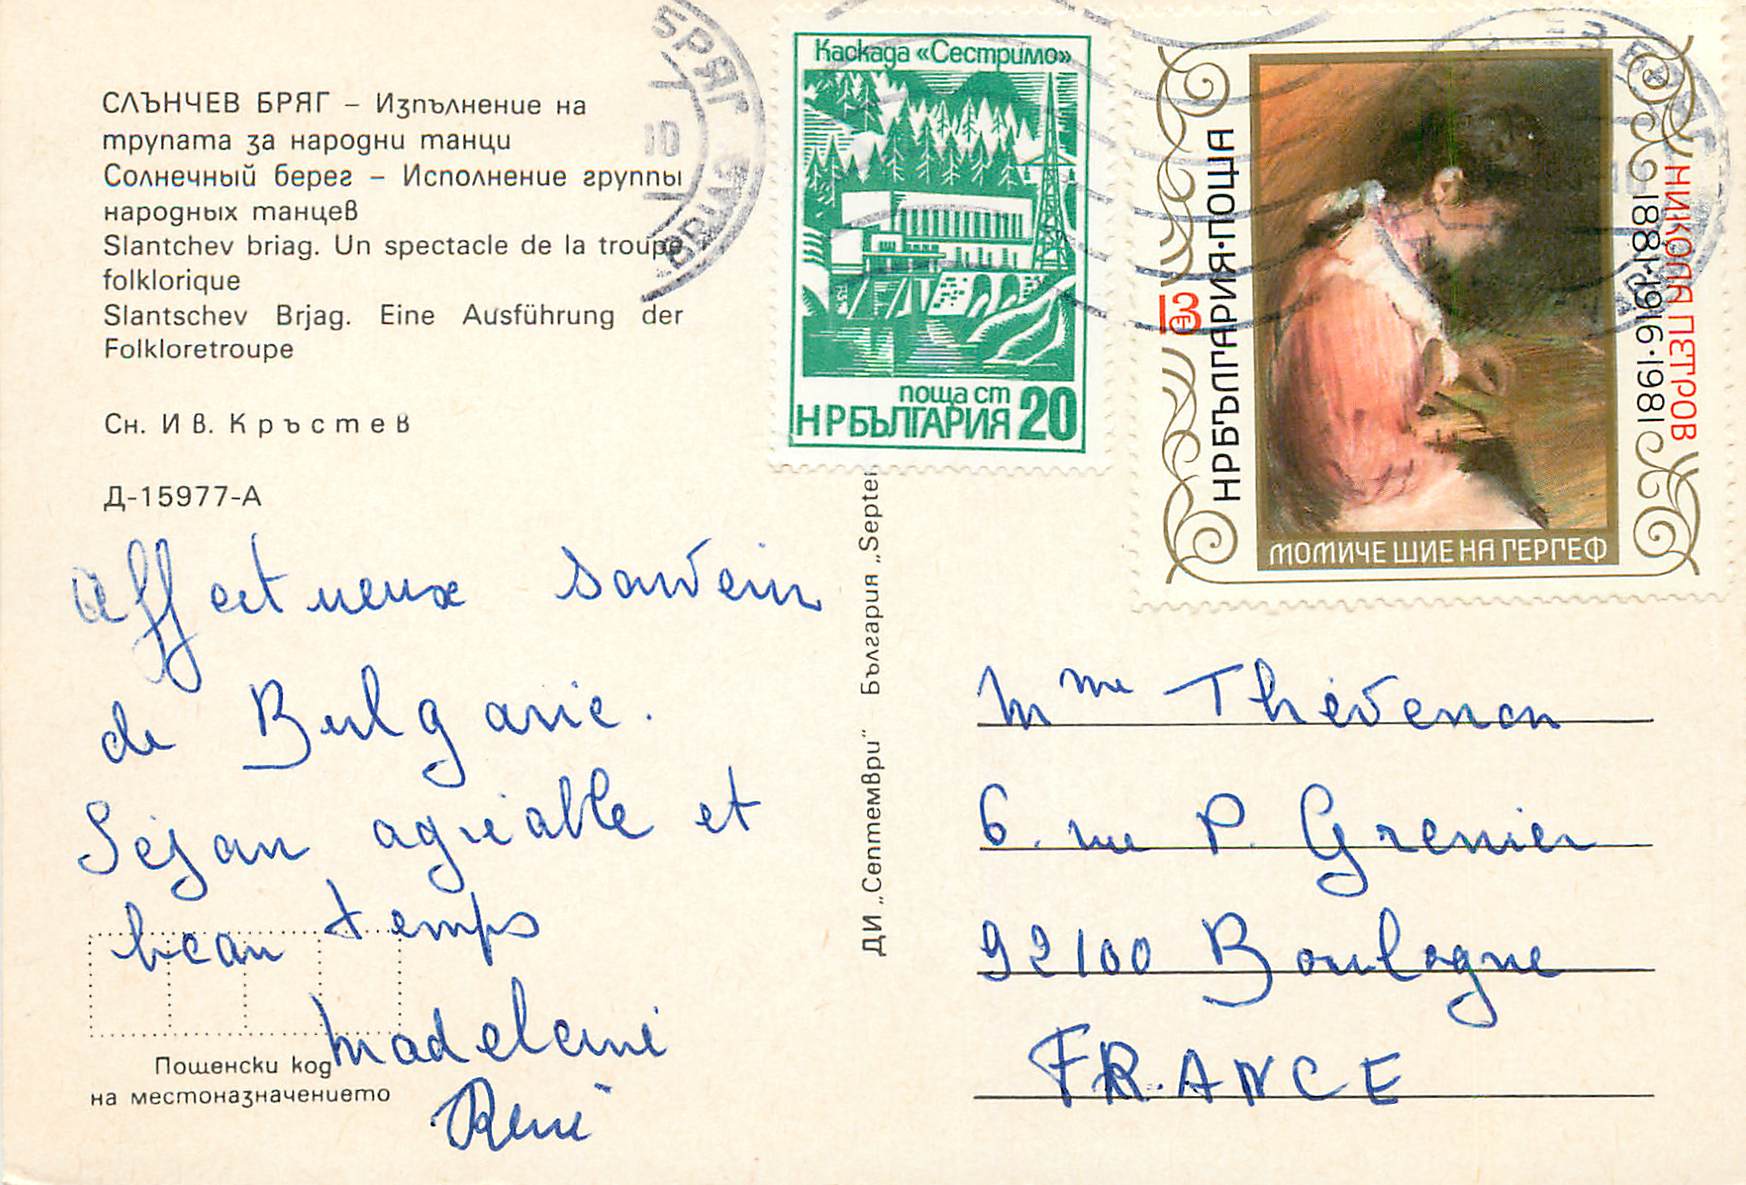 СЛЪНЧЕВ БРЯГ – Изпълнение на
трупата за народни танци
Солнечный берег – Исполнение группы
народных танцев
Slantchev briag. Un spectacle de la troupe
folklorique
Slantschev Brjag. Eine Ausführung der
Folkloretroupe
Сн. Ив. Кръстев
Д-15977-А
Affectueux souvenir
de Bulgarie.
Séjour agréable et
beau temps
Madeleine
René
Пощенски код
на местоназначението
ДИ „Септември“ България „Septe
Каскада «Сестримо»
поща ст 20
НР БЪЛГАРИЯ
13
НР БЪЛГАРИЯ·ПОЩА
НИКОЛА ПЕТРОВ
1881·1916·1981
МОМИЧЕ ШИЕ НА ГЕРГЕФ
БРЯГ
10
Mme Thévenon
6. rue P. Grenier
92100 Boulogne
FRANCE